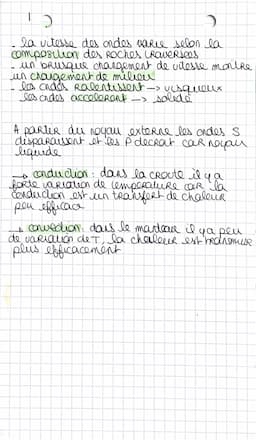 - la vitesse des ondes varie selon la
composition des roches traversées
- un brusque changement de vitesse montre
un changement de milieu
- les ondes ralentissent → visqueux
les ondes accélérant → solide
A partir du noyau externe les ondes S
disparaissent et les P décroit car noyau
liquide
→ conduction : dans la croute il y a
forte variation de température car la
conduction est un transfert de chaleur
peu efficace
→ convection : dans le manteau il y a peu
de variation de T, la chaleur est transmise
plus efficacement